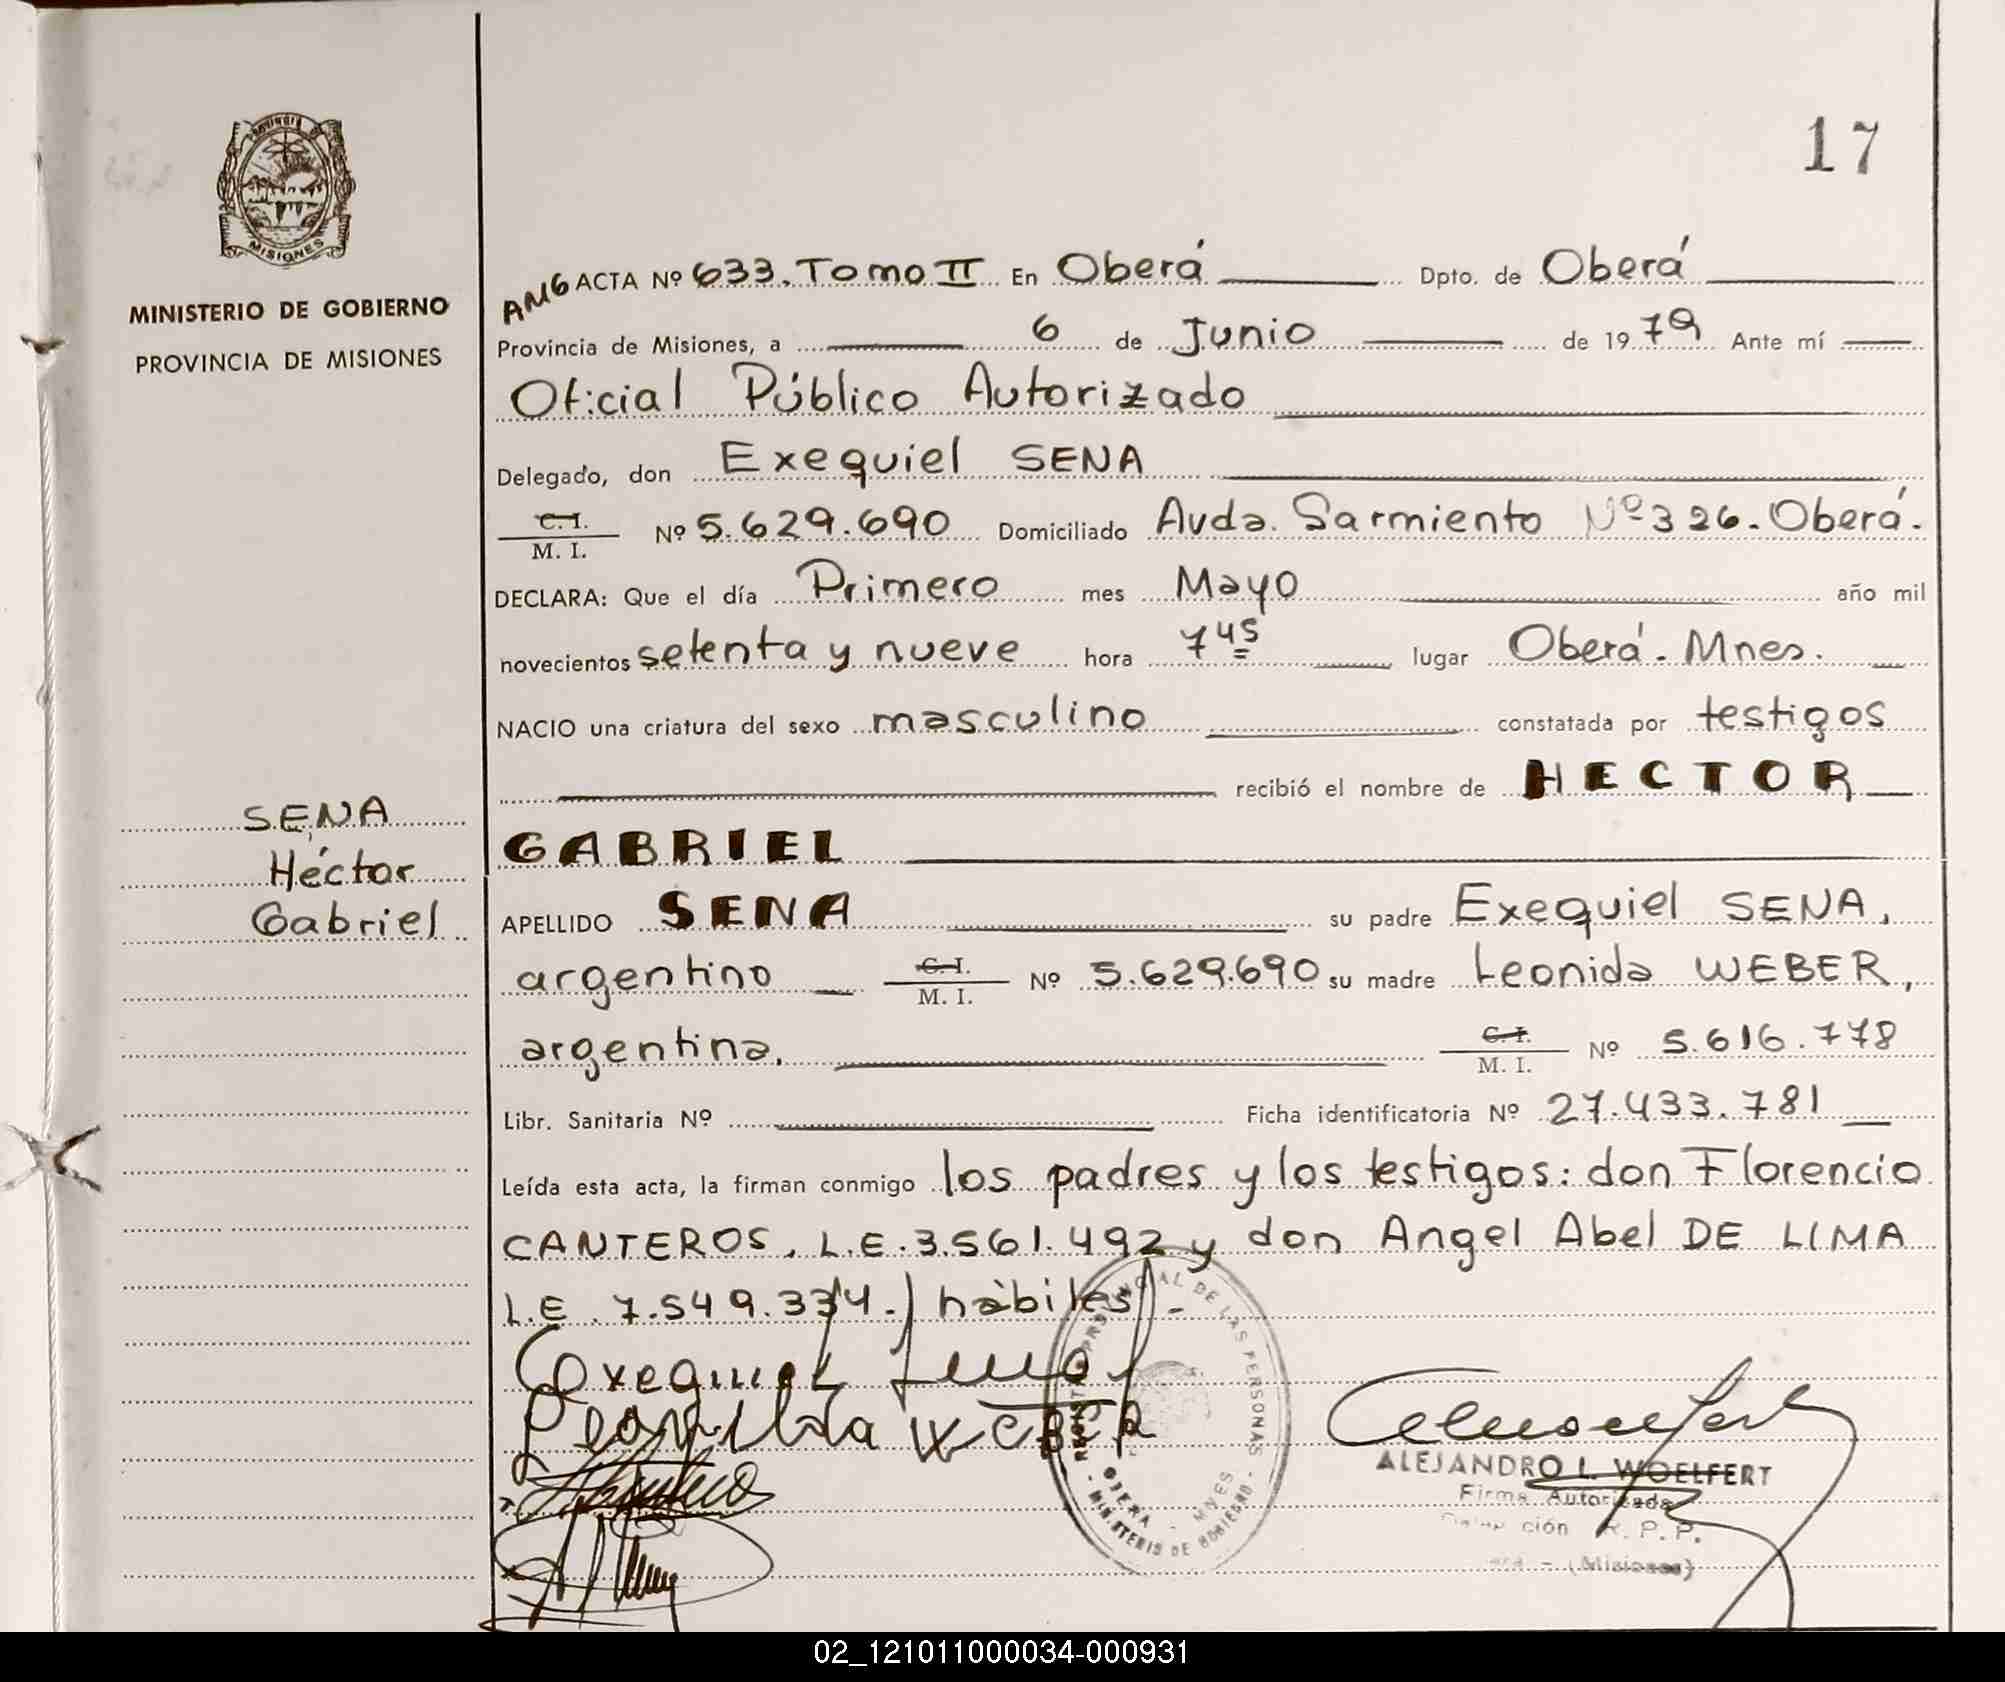 17
MINISTERIO DE GOBIERNO
PROVINCIA DE MISIONES
MISIONES
SENA
Héctor
Gabriel
AMG ACTA Nº 633. Tomo II En Oberá Dpto. de Oberá
Provincia de Misiones, a 6 de Junio de 1979 Ante mí
Oficial Público Autorizado
Delegado, don Exequiel SENA
C.I.
M. I. Nº 5.629.690 Domiciliado Avda. Sarmiento Nº 326. Oberá.
DECLARA: Que el día Primero mes Mayo año mil
novecientos setenta y nueve hora 7 45 lugar Oberá. Mnes.
NACIO una criatura del sexo masculino constatada por testigos
recibió el nombre de HECTOR
GABRIEL
APELLIDO SENA su padre Exequiel SENA,
argentino C.I. M. I. Nº 5.629.690 su madre Leonida WEBER,
argentina. C.I. M. I. Nº 5.616.778
Libr. Sanitaria Nº Ficha identificatoria Nº 27.433.781
Leída esta acta, la firman conmigo los padres y los testigos: don Florencio
CANTEROS, L.E. 3.561.492 y don Angel Abel DE LIMA
L.E. 7.549.334. hábiles.-
REGISTRO PROVINCIAL DE LAS PERSONAS
OBERA - MNES
MINISTERIO DE GOBIERNO
ALEJANDRO L. WOELFERT
Firma Autorizada
R. P. P.
(Misiones)
02_121011000034-000931